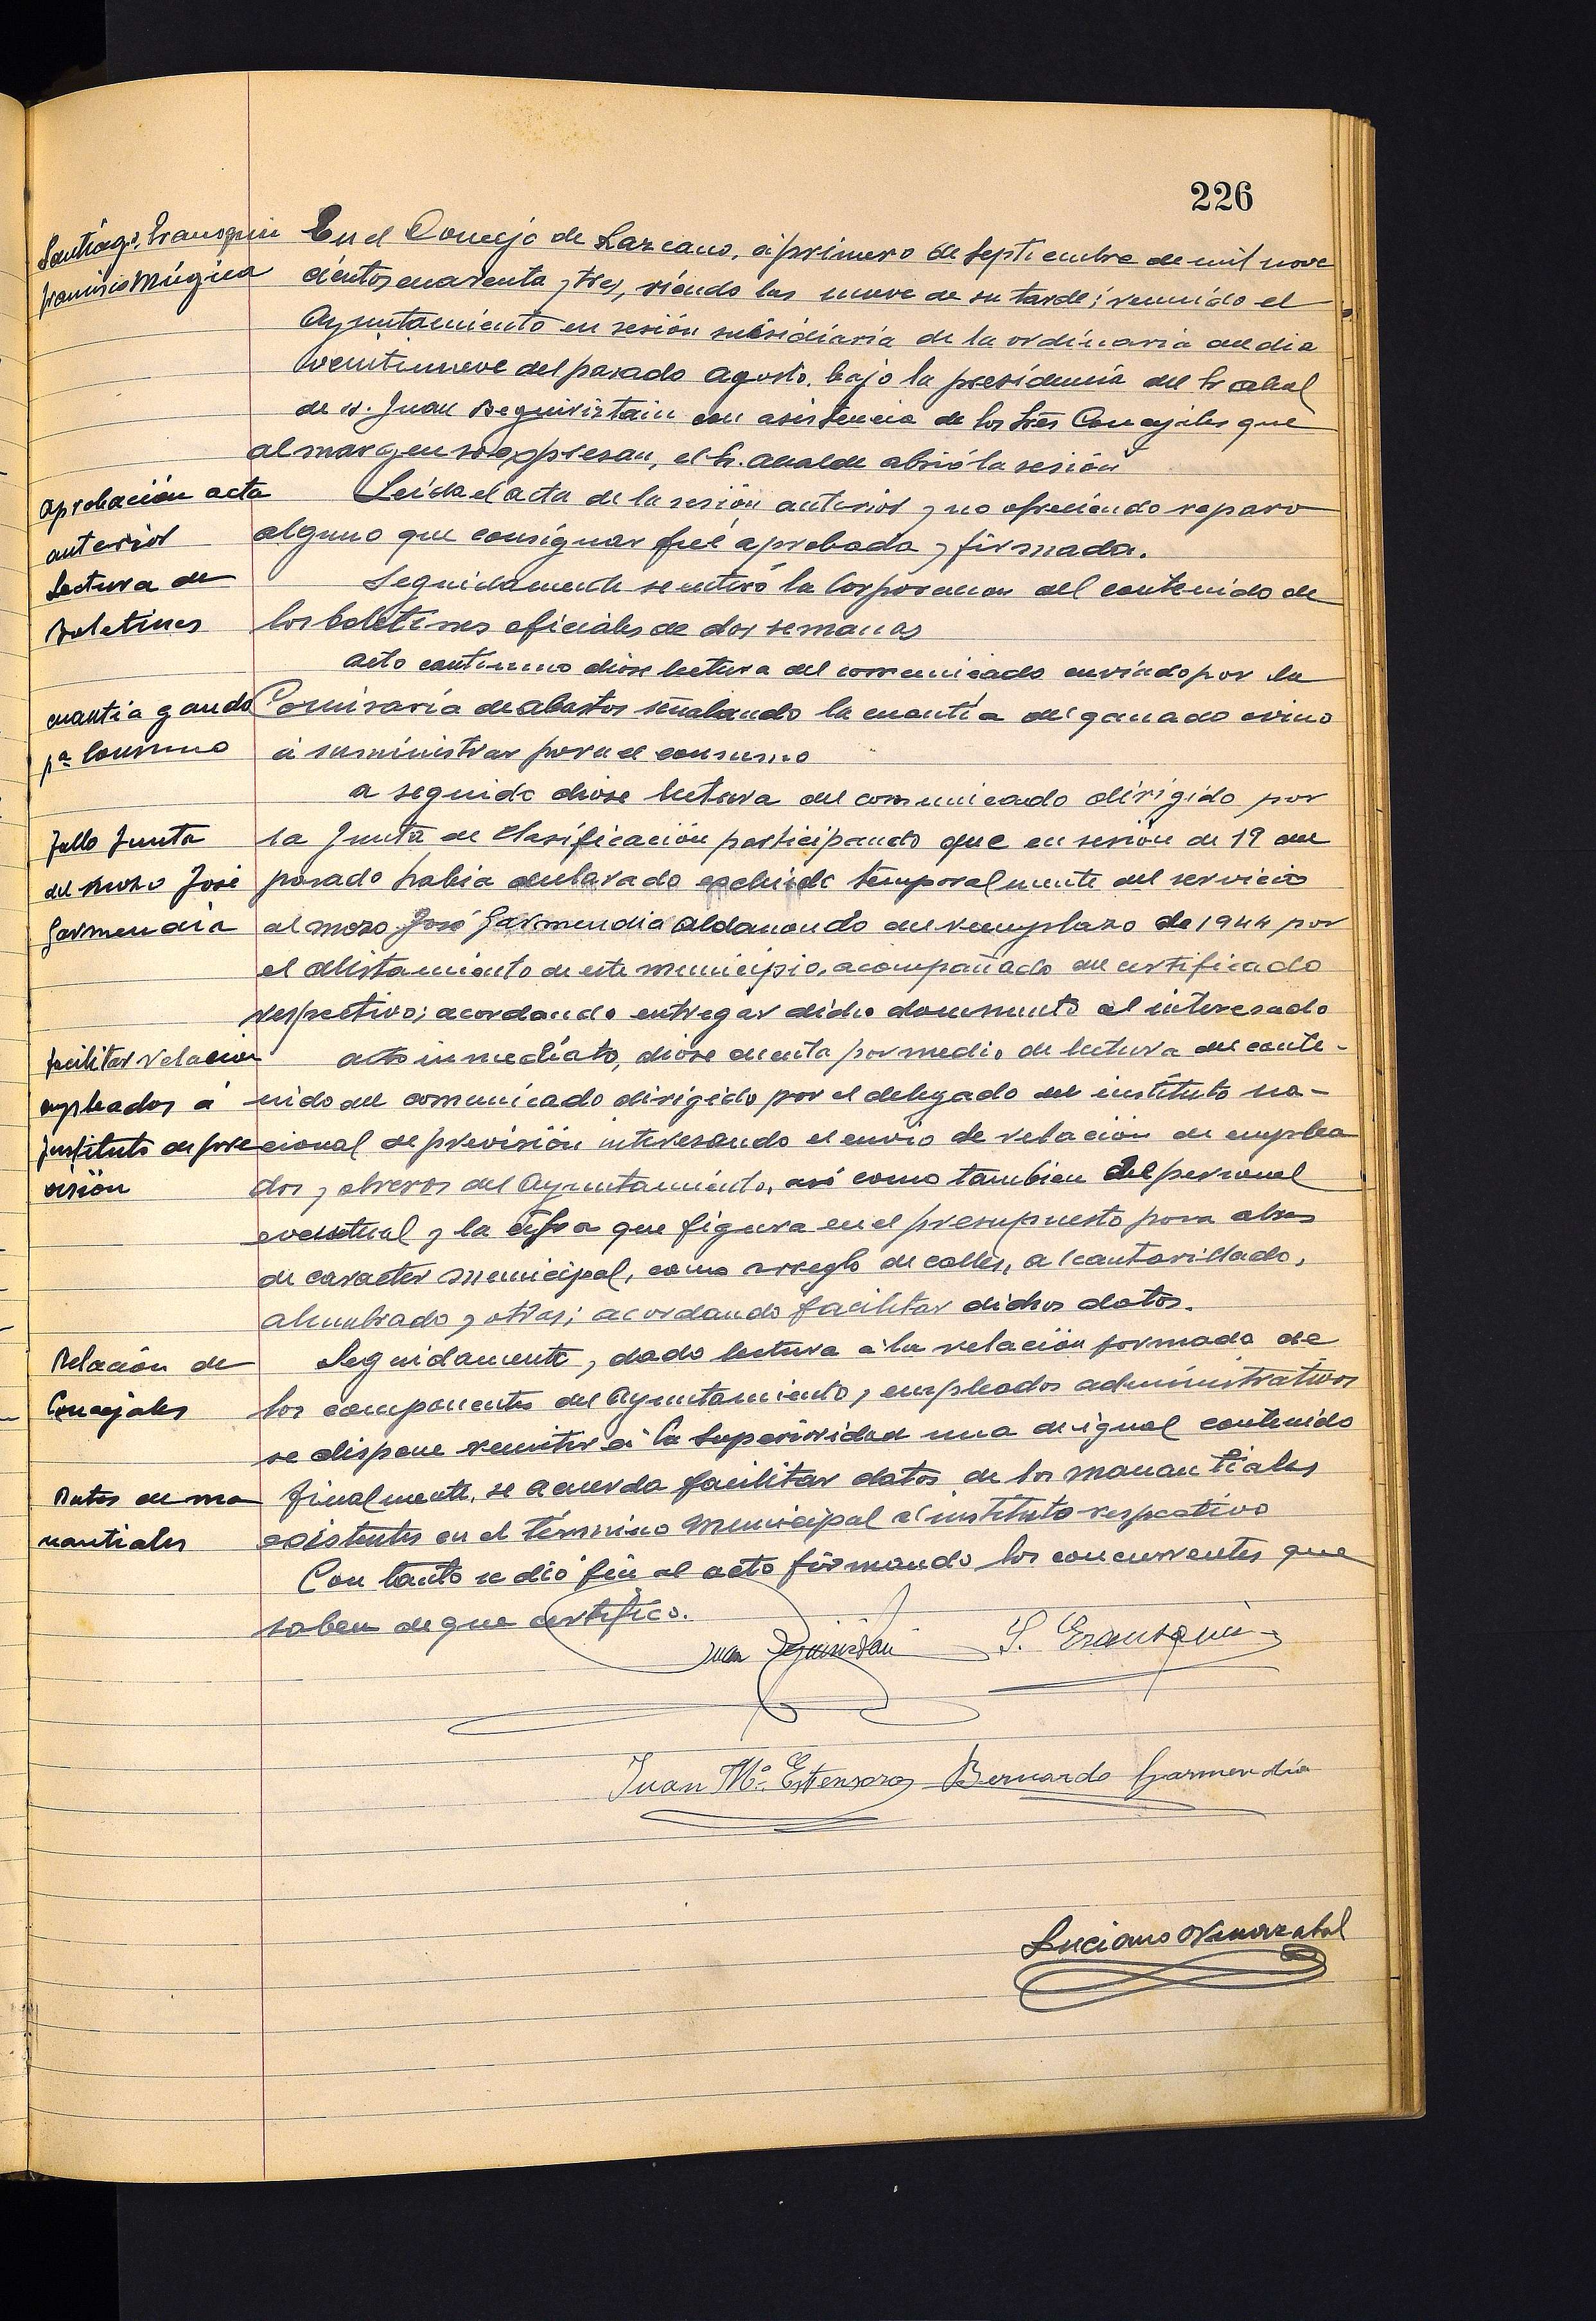 226
Santiago Irausquin
Francisco Múgica
En el Concejo de Lazcano, á primero de Septiembre de mil nove
cientos cuarenta y tres, siendo las nueve de su tarde; reunido el
Ayuntamiento en sesión subsidiaria de la ordinaria del dia
veintinueve del pasado Agosto, bajo la presidencia del Sr alcal
de D. Juan Beguiristain con asistencia de los Sres Concejales que
al margen se expresan, el Sr. Alcalde abrió la sesión
Aprobación acta
anterior
Leida el acta de la sesión anterior y no ofreciendo reparo
alguno que consignar fué aprobada y firmada.
Lectura de
Boletines
Seguidamente se enteró la Corporacion del contenido de
los boletines oficiales de dos semanas
Acto continuo dióse lectura del comunicado enviado por la
cuantia ganado
pª Consumo
Comisaría de abastos señalando la cuantía del ganado ovino
á suministrar para el consumo
A seguido dióse lectura del comunicado dirigido por
Fallo Junta
del mozo José
Garmendia
la Junta de Clasificación participando que en sesión de 19 del
pasado habia declarado excluido temporalmente del servicio
al mozo José Garmendia Aldanondo del reemplazo de 1944 por
el alistamiento de este municipio, acompañado del certificado
respectivo; acordando entregar dicho documento al interesado
facilitar relacion
empleados á
Instituto de pre
visión
acto inmediato, dióse cuenta por medio de lectura del conte-
nido del comunicado dirigido por el delegado del instituto na-
cional de previsión interesando el envio de relación de emplea
dos y obreros del Ayuntamiento, asi como tambien del personal
eventual y la cifra que figura en el presupuesto para obras
de caracter municipal, como arreglo de calles, alcantarillado,
alumbrado y otras; acordando facilitar dichos datos.
Relación de
Concejales
Seguidamente, dado lectura á la relación formada de
los componentes del Ayuntamiento y empleados administrativos
se dispone remitir á la Superioridad una de igual contenido
Datos de ma
nantiales
finalmente, se acuerda facilitar datos de los manantiales
existentes en el término municipal al instituto respectivo
Con tanto se dió fin al acto firmando los concurrentes que
saben de que certifico.
Juan Beguiristain S. Irausquin
Juan Mª Estensoro Bernardo Garmendia
Luciano